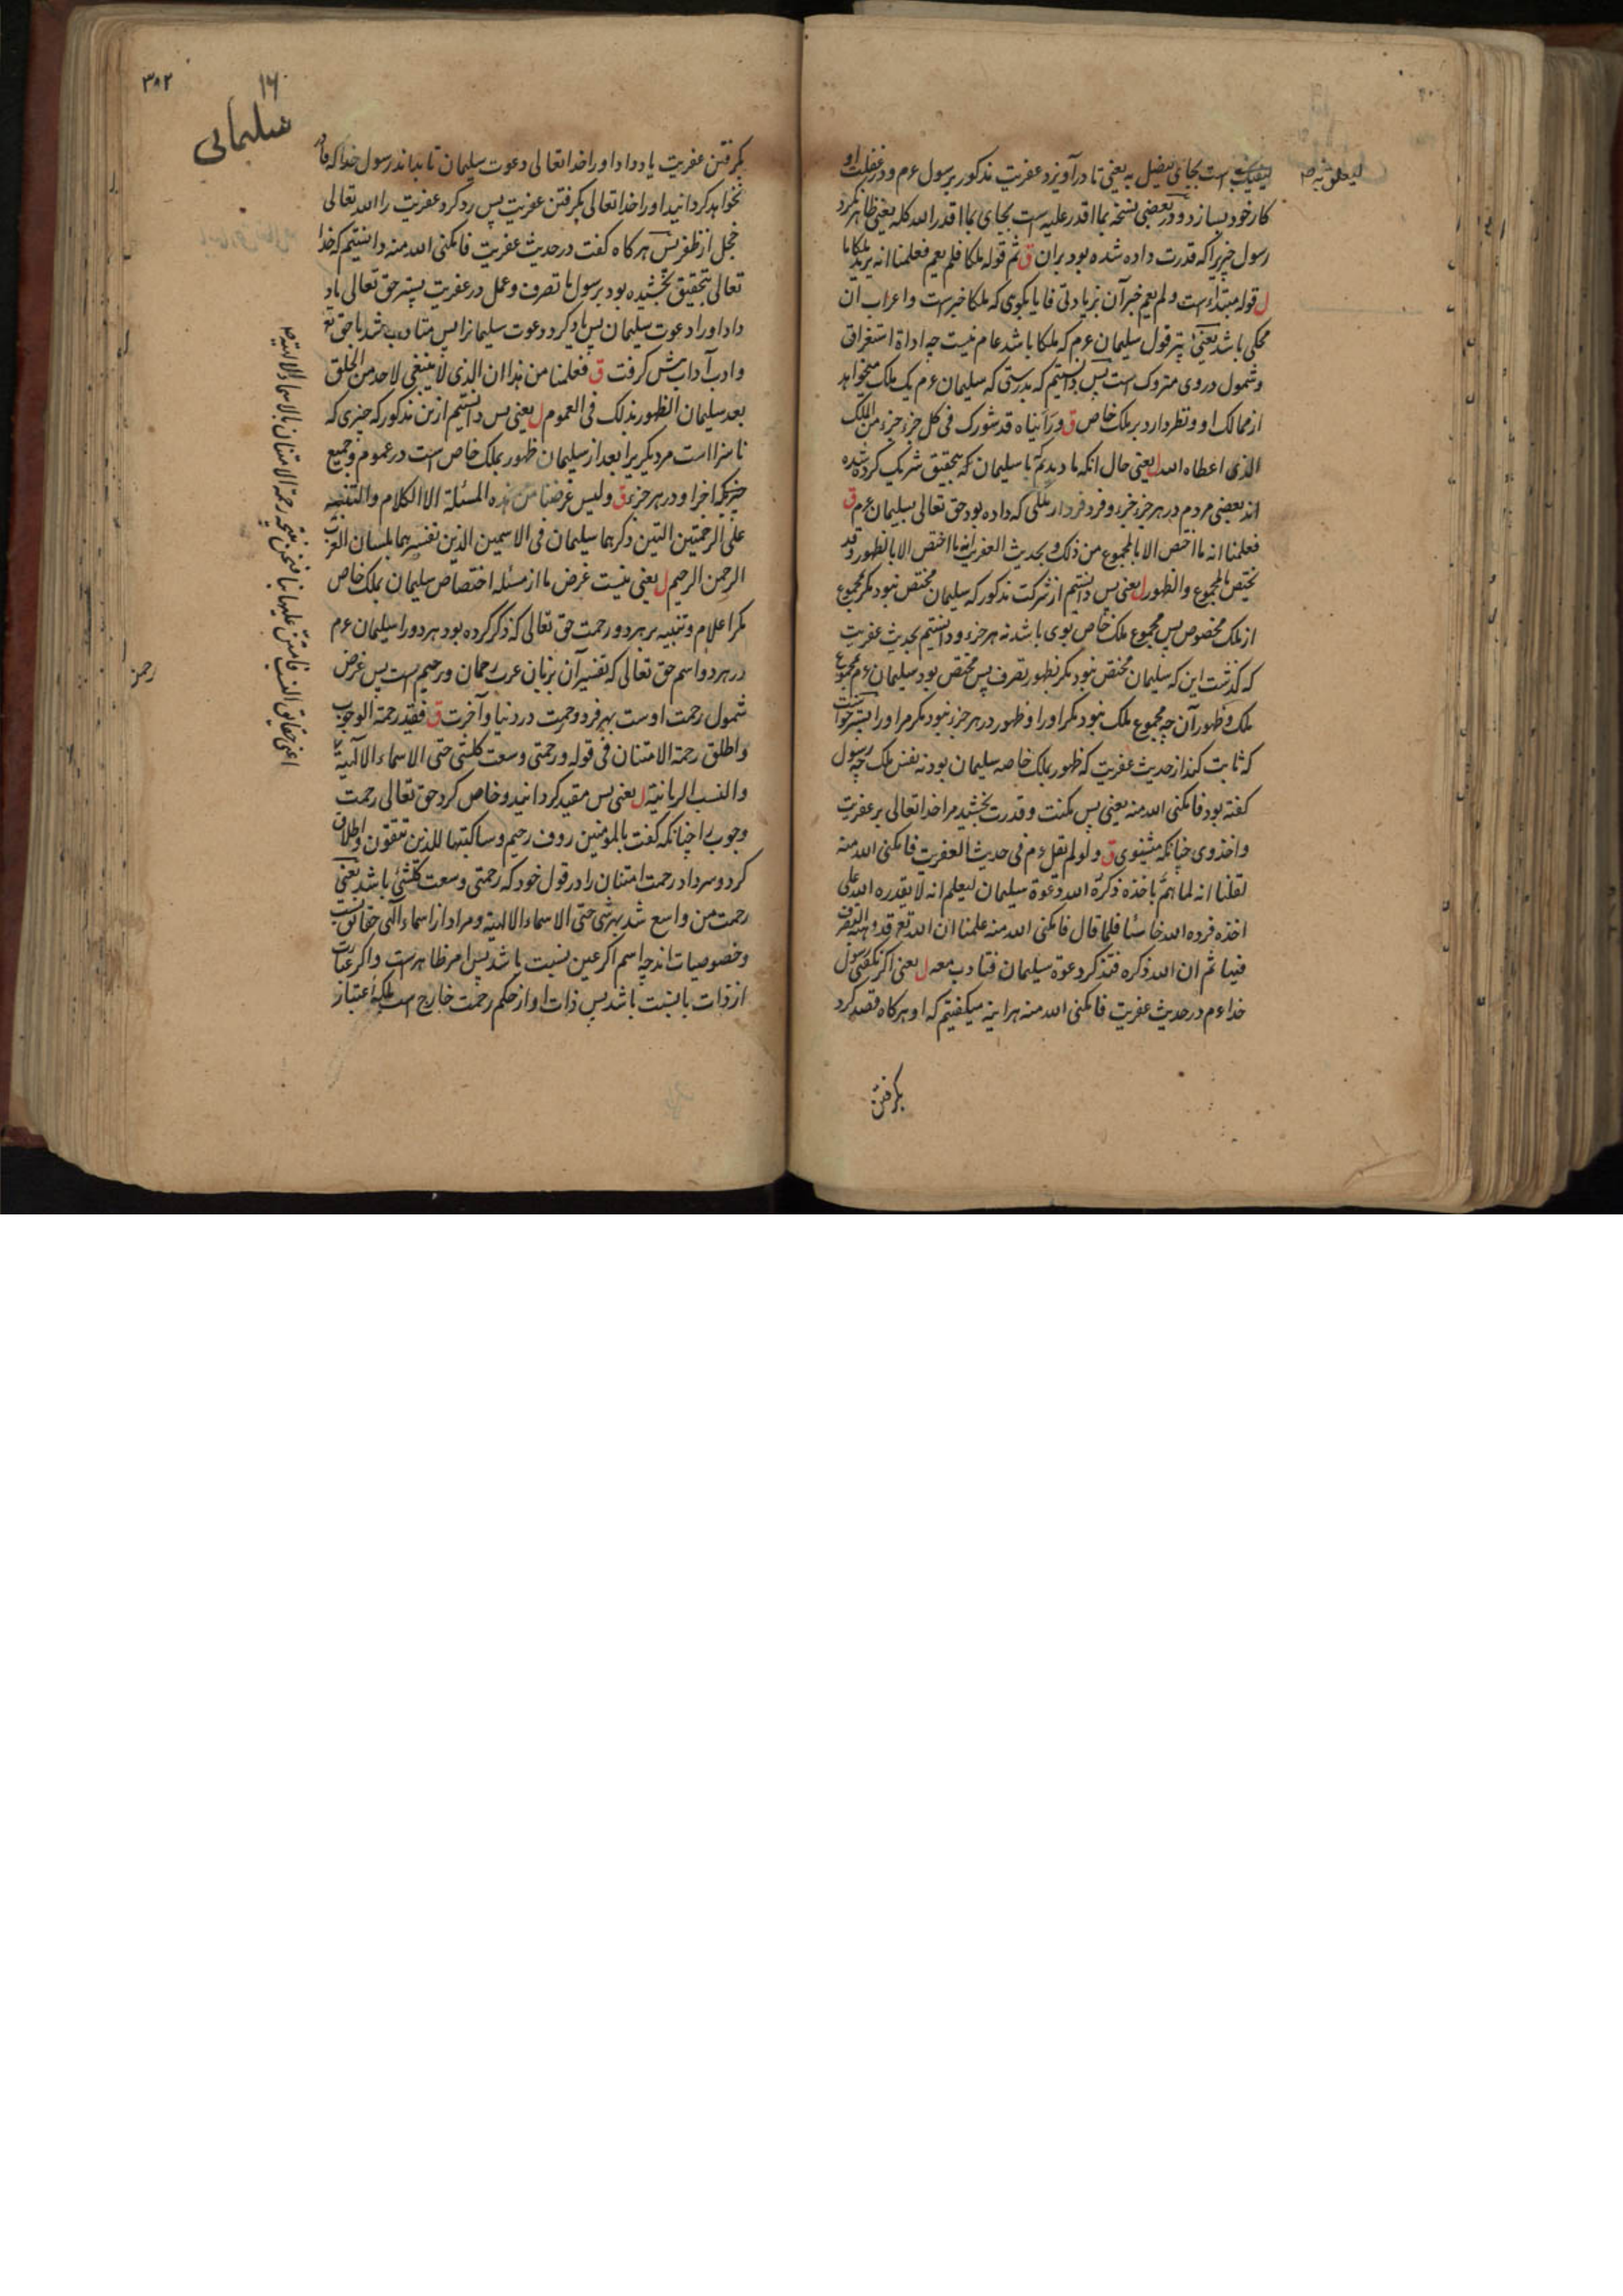 لیفتک است بجای لیضل به یعنی تا درآویزد عفریت مذکور برسول عم و در غفلت او
کار خود بسازد و در بعضی نسخه بما اقدر علیه است بجای بما اقدر الله کله یعنی ظاهر نکرد
رسول چیزیرا که قدرت داده شده بود بران ق ثم قوله ملکا فلم یعم فعلمنا انه یرید ملکا ما
ل قوله مبتداء است و لم یعم خبر آن بزیادتی فا یا بکوی که ملکا خبر است و اعراب ان
محکی باشد یعنی پس قول سلیمان عم که ملکا باشد عام نیست چه اداة استغراق
و شمول در وی متروک است پس دانستیم که بدرستی که سلیمان عم یک ملک میخواهد
از ممالک او و نظر دارد بر ملک خاص ق و رأیناه قد شورک فی کل جزء جزء من الملک
الذی اعطاه الله ل یعنی حال انکه ما دیدیم با سلیمان که بتحقیق شریک کرده شده
اند بعضی مردم در هر جزء جزء و فرد فرد از ملکی که داده بود حق تعالی بسلیمان عم ق
فعلمنا انه ما اختص الا بالمجموع من ذلک و بحدیث العفریت انه ما اختص الا بالظهور و قد
یختص بالمجموع و الظهور ل یعنی پس دانستیم از شرکت مذکور که سلیمان مختص نبود مکر بمجموع
از ملک مخصوص پس مجموع ملک خاص بوی باشد نه هر جزء و دانستیم بحدیث عفریت
که گذشت این که سلیمان مختص نبود مکر بظهور تصرف پس مختص بود سلیمان عم بمجموع
ملک و ظهور آن چه مجموع ملک نبود مکر او را و ظهور در هر جزء نبود مکر مر او را
که ثابت کند از حدیث عفریت که ظهور بملک خاصه سلیمان بود نه نفس ملک چه رسول
گفته بود فامکننی الله منه یعنی پس مکنت و قدرت بخشید مرا خدا تعالی بر عفریت
و اخذ وی چنانکه میشنوی ق و لو لم یقل عم فی حدیث العفریت فامکننی الله منه
لقلنا انه لما هم باخذه ذکره الله دعوة سلیمان لیعلم انه لا یقدره الله علی
اخذه فرده الله خاسئا فلما قال فامکننی الله منه علمنا ان الله تع قد وهبه التصرف
فیه ثم ان الله ذکره فتذکر دعوة سلیمان فتادب معه ل یعنی اکر نکفتی رسول
خدا عم در حدیث عفریت فامکننی الله منه هر اینه میکفتیم که او هرکاه قصد کرد
بکرفتن
۳۸۲
۱۶
سلیمانی
بکرفتن عفریت یاد داد او را خدا تعالی دعوت سلیمان تا بداند رسول خدا که قادر
نخواهد کردانید او را خدا تعالی بکرفتن عفریت پس رد کرد عفریت را الله تعالی
خجل از ظفر پس هرکاه کفت در حدیث عفریت فامکننی الله منه دانستیم که خدا
تعالی بتحقیق بخشیده بود برسول ما تصرف و عمل در عفریت پستر حق تعالی یاد
داد او را دعوت سلیمان پس یاد کرد دعوت سلیمانرا پس متادب شد با حق تع
و ادب آداب پیش کرفت ق فعلمنا من هذا ان الذی لا ینبغی لاحد من الخلق
بعد سلیمان الظهور بذلک فی العموم ل یعنی پس دانستیم ازین مذکور که چیزی که
ناسزا است مر دیکریرا بعد از سلیمان ظهور بملک خاص است در عموم و جمیع
و در هر جزء ق و لیس غرضنا من هذه المسئلة الا الکلام و التنبیه
علی الرحمتین اللتین ذکرهما سلیمان فی الاسمین الذین تفسیرهما بلسان العرب
الرحمن الرحیم ل یعنی نیست غرض ما از مسئله اختصاص سلیمان بملک خاص
مکر اعلام و تنبیه بر هر دو رحمت حق تعالی که ذکر کرده بود هر دو را سلیمان عم
در هر دو اسم حق تعالی که تفسیر آن بزبان عرب رحمان و رحیم است پس غرض
شمول رحمت اوست بهر فرد در دنیا و آخرت ق فقید رحمة الوجوب
و اطلق رحمة الامتنان فی قوله و رحمتی وسعت کلشئ حتی الاسماء الالهیة
و النسب الربانیة ل یعنی پس مقید کردانید و خاص کرد حق تعالی رحمت
وجوب را چنانکه کفت بالمؤمنین رؤف رحیم و ساکتبها للذین یتقون و اطلاق
کرد و سرداد رحمت امتنان را در قول خود که رحمتی وسعت کلشئ باشد یعنی
رحمت من واسع شد بهر شئ حتی الاسماء الالهیة و مراد از اسماء الهی حقایق نسب
و خصوصیات اند چه اسم اکر عین نسبت باشد پس امر ظاهر است و اکر عبارت
از ذات با نسبت باشد پس ذات او از حکم رحمت خارج است بلکه اعتبار
رحمن